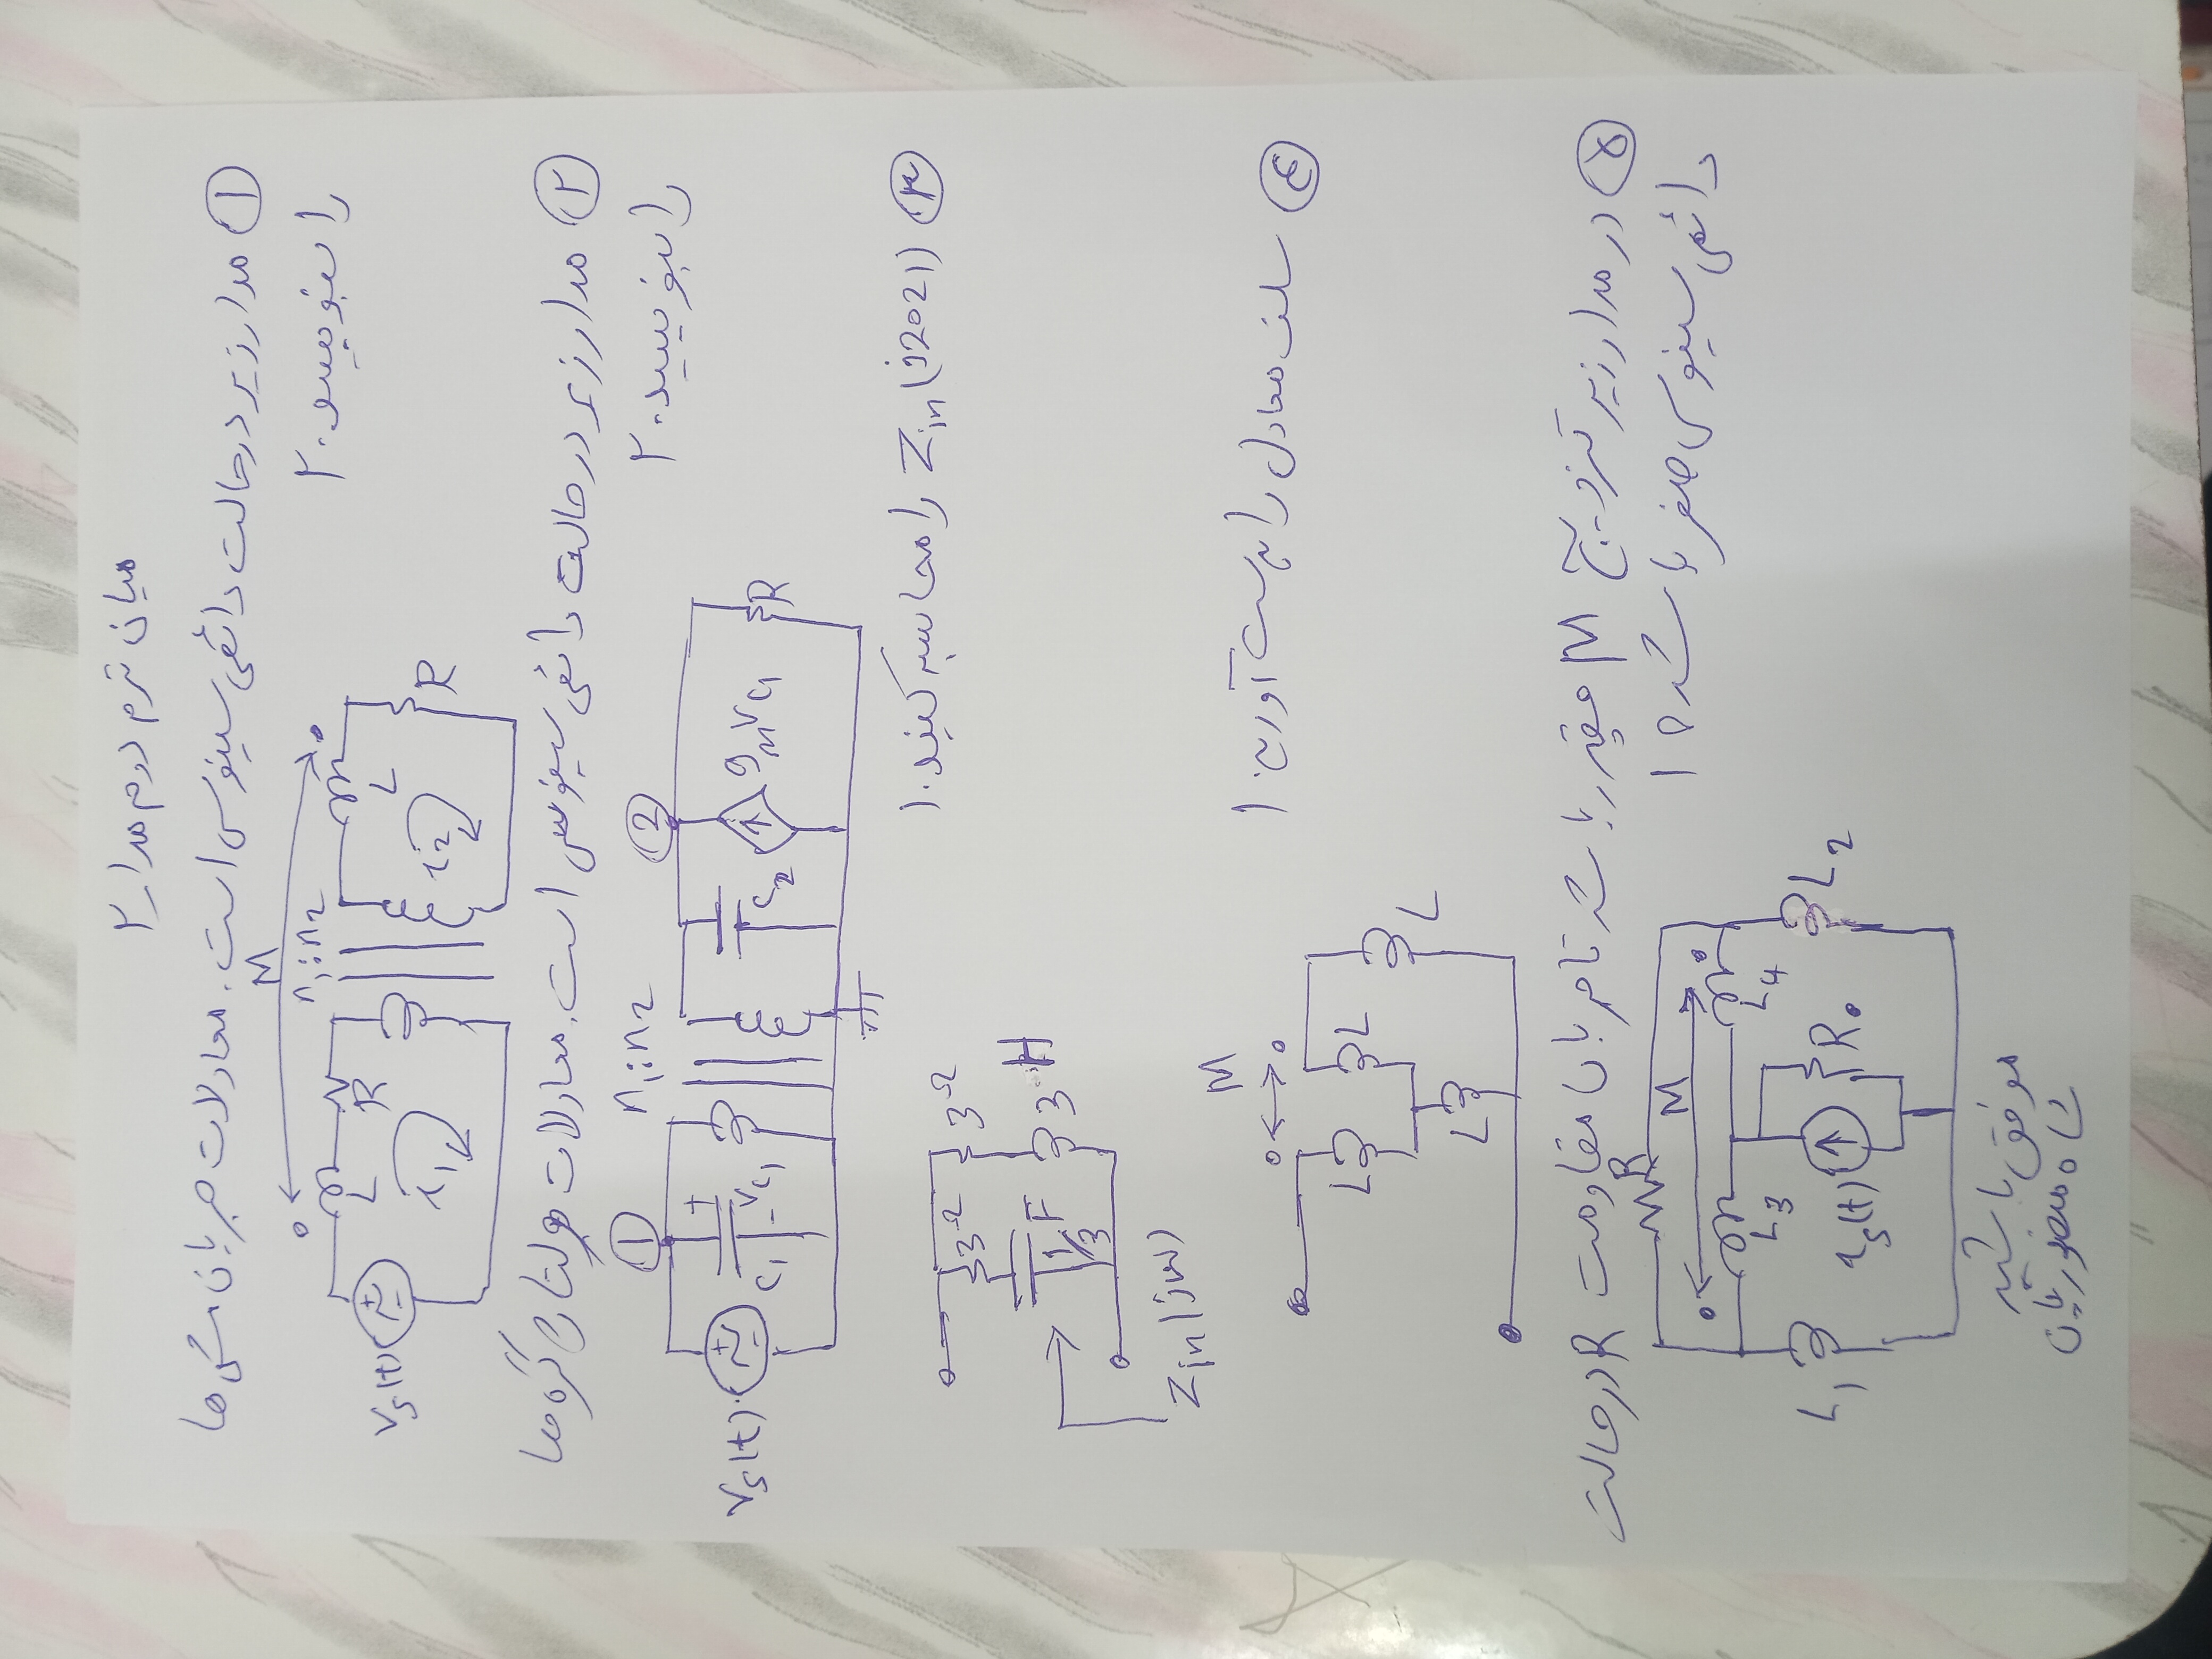 میان ترم دوم مدار ۲
① مدار زیر در حالت دائمی سینوسی است. معادلات جریان مش ها
را بنویسید. ۲
M
n1:n2
L
R
L
Vs(t)
i1
i2
R
② مدار زیر در حالت دائمی سینوسی است. معادلات ولتاژ گره ها
را بنویسید. ۲
①
n1:n2
②
Vs(t)
C1
+
VC1
-
C2
gmVC1
R
③ Zin(j2021) را محاسبه کنید. ۱
3Ω
3Ω
1/3 F
3 H
Zin(jω)
④ سلف معادل را بدست آورید. ۱
M
L
L
L
L
⑤ در مدار زیر تزویج M چقدر باشد تا جریان مقاومت R در حالت
دائمی سینوسی صفر باشد؟ ۱
R
M
L3
L4
L1
is(t)
R0
L2
موفق باشید
شاه منصوریان